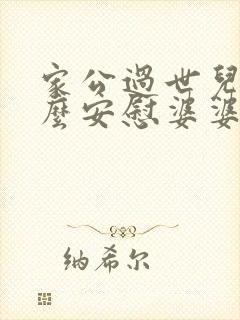 家公過世兒
麼安慰婆婆
纳希尔